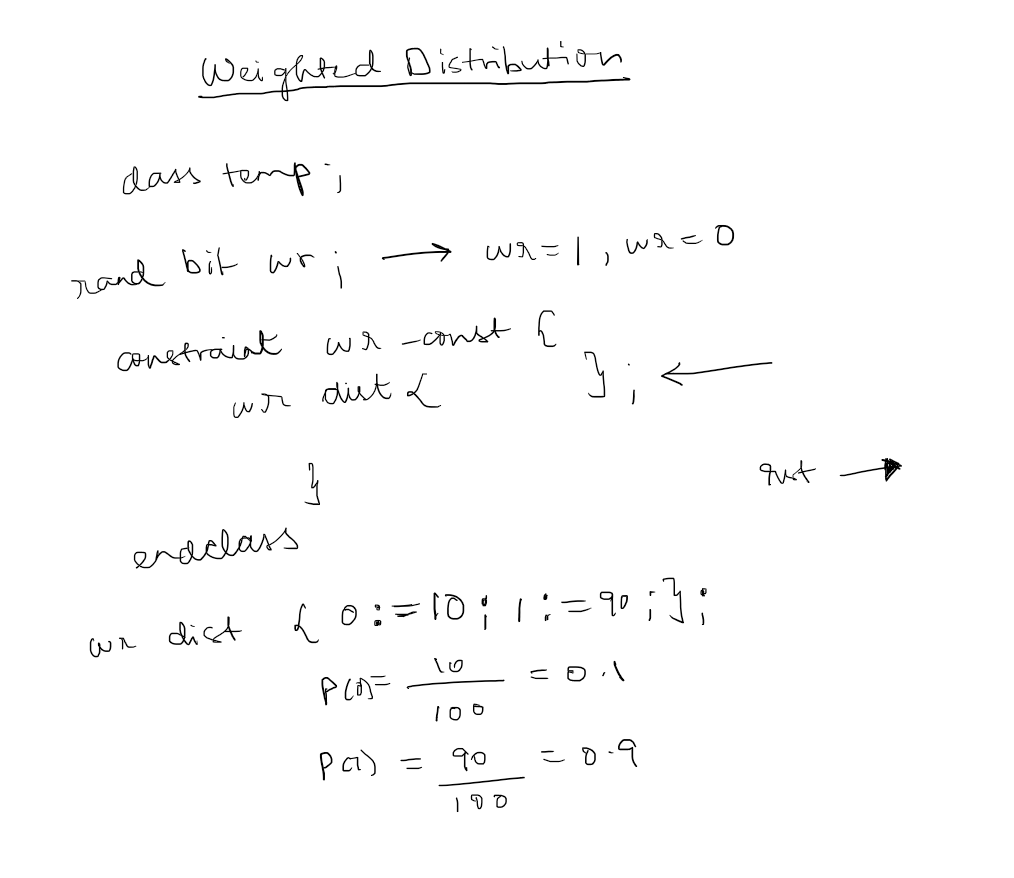 Weighted Distribution
class temp;
rand bit wr; → wr=1, wr=0
constraint wr_const {
wr dist { }; ←
}
rst →
endclass
wr dist { 0:=10; 1:=90;};
P(0)= 10/100 = 0.1
P(1) = 90/100 = 0.9